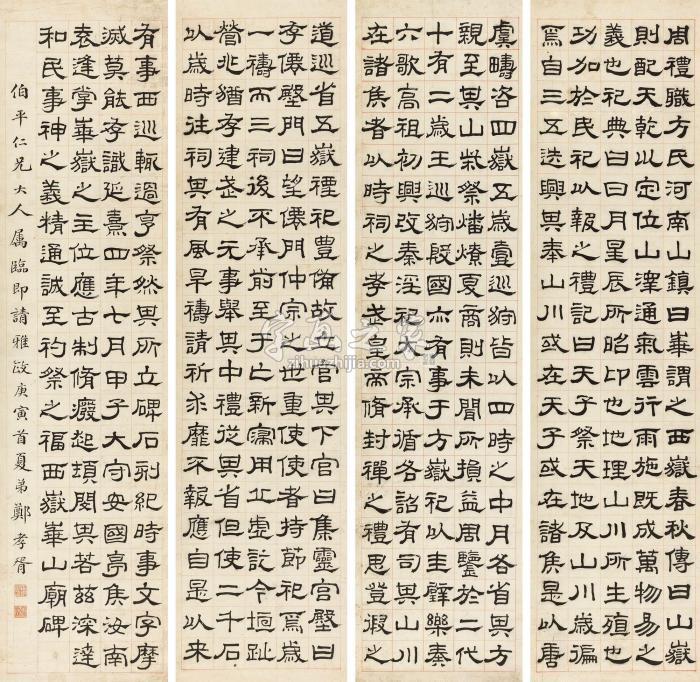 周禮職方氏河南山鎮曰崋謂之西嶽春秋傳曰山嶽
則配天乾以定位山澤通氣雲行雨施既成萬物易之
義也祀典曰日月星辰所昭印也地理山川所生殖也
功加於民祀以報之禮記曰天子祭天地及山川歲徧
焉自三五迭興其奉山川或在天子或在諸矦是以唐
虞疇咨四嶽五歲壹巡狩皆以四時之中月各省其方
親至其山柴祭燔燎夏商則未聞所損益周鑒於二代
十有二歲王巡狩殷國亦有事于方嶽祀以圭璧樂奏
六歌高祖初興改秦淫祀大宗承循各詔有司其山川
在諸矦者以時祠之孝武皇帝脩封禪之禮思登徦之
道巡省五嶽禋祀豐備故立宮其下宮曰集靈宮壂曰
存僊壂門曰望僊門仲宗之世重使使者持節祀焉歲
一禱而三祠後不承前至于亡新寖用丘虛訖今垣趾
營兆猶存建武之元事舉其中禮從其省但使二千石
以歲時往祠其有風旱禱請祈求靡不報應自是以來
有事西巡輒過亨祭然其所立碑石刻紀時事文字摩
滅莫能存識延熹四年七月甲子大守安國亭矦汝南
袁逢掌崋嶽之主位應古制脩癈起頓閔其若茲深達
和民事神之義精通誠至礿祭之福西嶽崋山廟碑
伯平仁兄大人属臨即請雅政庚寅首夏弟鄭孝胥
字画之家
zihuazhijia.com